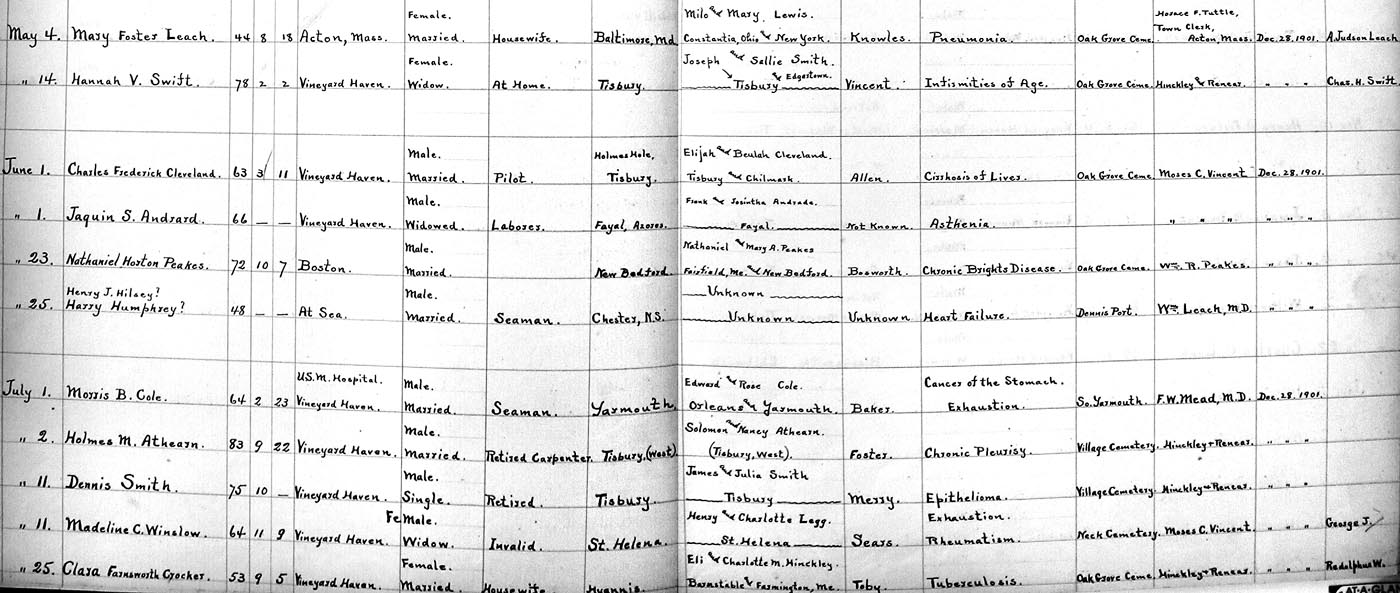 Female. Milo & Mary Lewis. Horace F. Tuttle, Town Clerk,
May 4. Mary Foster Leach. 44 8 18 Acton, Mass. Married. Housewife. Baltimore, Md Constantia, Ohio & New York. Knowles. Pneumonia. Oak Grove Ceme. Acton, Mass. Dec. 28, 1901. A. Judson Leach
Female. Joseph & Sallie Smith.
" 14. Hannah V. Swift. 78 2 2 Vineyard Haven. Widow. At Home. Tisbury. Tisbury & Edgartown. Vincent. Infirmities of Age. Oak Grove Ceme. Hinckley & Renear. " " " Chas. H. Swift.
Male. Holmes Hole, Elijah & Beulah Cleveland.
June 1. Charles Frederick Cleveland. 63 3 11 Vineyard Haven. Married. Pilot. Tisbury. Tisbury & Chilmark. Allen. Cirrhosis of Liver. Oak Grove Ceme. Moses C. Vincent Dec. 28, 1901.
Male. Frank & Josintha Andrade.
" 1. Jaquin S. Andrard. 66 — — Vineyard Haven. Widowed. Laborer. Fayal, Azores. Fayal. Not Known. Asthenia. " " " " " "
Male. Nathaniel & Mary A. Peakes
" 23. Nathaniel Horton Peakes. 72 10 7 Boston. Married. New Bedford. Fairfield, Me. & New Bedford. Bosworth. Chronic Brights Disease. Oak Grove Ceme. Wm. R. Peakes. " " "
Henry J. Hilsey? Male. Unknown
" 25. Harry Humphrey? 48 — — At Sea. Married. Seaman. Chester, N.S. Unknown Unknown Heart Failure. Dennis Port. Wm. Leach, M.D. " " "
U.S.M. Hospital. Male. Edward & Rose Cole. Cancer of the Stomach.
July 1. Morris B. Cole. 64 2 23 Vineyard Haven. Married. Seaman. Yarmouth. Orleans & Yarmouth. Baker. Exhaustion. So. Yarmouth. F.W. Mead, M.D. Dec. 28, 1901.
Male. Solomon & Nancy Athearn.
" 2. Holmes M. Athearn. 83 9 22 Vineyard Haven. Married. Retired Carpenter. Tisbury, (West). (Tisbury, West). Foster. Chronic Pleurisy. Village Cemetery. Hinckley & Renear. " " "
Male. James & Julia Smith
" 11. Dennis Smith. 75 10 — Vineyard Haven. Single. Retired. Tisbury. Tisbury Merry. Epithelioma. Village Cemetery. Hinckley & Renear. " " "
Female. Henry & Charlotte Legg. Exhaustion.
" 11. Madeline C. Winslow. 64 11 9 Vineyard Haven. Widow. Invalid. St. Helena. St. Helena Sears. Rheumatism. Neck Cemetery. Moses C. Vincent. " " " George J.
Female. Eli & Charlotte M. Hinckley.
" 25. Clara Farnsworth Crocker. 53 9 5 Vineyard Haven. Married. Housewife. Hyannis. Barnstable & Farmington, Me. Toby. Tuberculosis. Oak Grove Ceme. Hinckley & Renear. " " " Rodolphus W.
AT-A-GLA